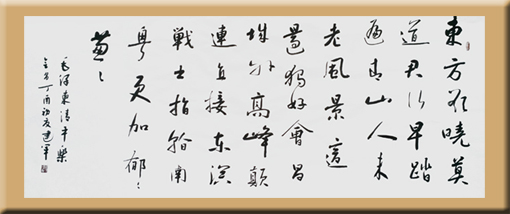 東方欲曉莫
道君行早踏
遍青山人未
老風景這
邊獨好會昌
城外高峰顛
連直接東溟
戰士指看南
粤更加郁〻
葱〻
毛澤東清平樂
丁酉初夏建軍